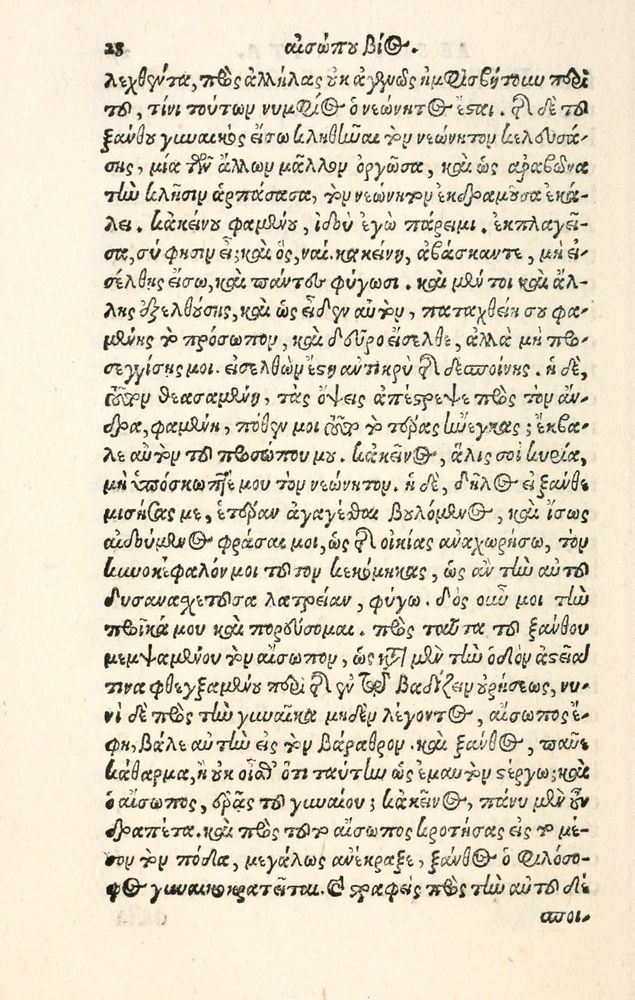 28 αἰσώπου βίος.
λεχθέντα, πρὸς ἀλλήλας οὐκ ἀγεννῶς ἠμφισβήτουν περὶ
τοῦ, τίνι τούτων νυμφίος ὁ νεώνητος ἔσται. τῆς δὲ τοῦ
ξάνθου γυναικὸς εἴσω κληθῆναι τὸν νεώνητον κελευσά-
σης, μία τῶν ἄλλων μᾶλλον ὀργῶσα, καὶ ὡς ἀραβῶνα
τὴν κλῆσιν ἁρπάσασα, τὸν νεώνητον ἐκδραμοῦσα ἐκά-
λει. κἀκείνου φαμένου, ἰδοὺ ἐγὼ πάρειμι. ἐκπλαγεῖ-
σα, σύ φησιν εἶ; καὶ ὅς, ναί. κἀκείνη, ἀβάσκαντε, μὴ εἰ-
σέλθῃς εἴσω, καὶ πάντες φύγωσι. καὶ μέν τοι καὶ ἄλ-
λης ἐξελθούσης, καὶ ὡς εἶδεν αὐτὸν, παταχθείη σου φα-
μένης τὸ πρόσωπον, καὶ δεῦρο εἴσελθε, ἀλλὰ μὴ προ-
σεγγίσῃς μοι. εἰσελθὼν ἔστη ἀντικρὺ τῆς δεσποίνης. ἡ δὲ,
τοῦτον θεασαμένη, τὰς ὄψεις ἀπέστρεψε πρὸς τὸν ἄν-
δρα, φαμένη, πόθεν μοι τοῦτο τὸ τέρας ἤνεγκας; ἔκβα-
λε αὐτὸν τοῦ προσώπου μου. κἀκεῖνος, ἅλις σοι κυρία,
μὴ ὑπόσκωπτέ μου τὸν νεώνητον. ἡ δὲ, δῆλος εἶ ξάνθε
μισήσας με, ἑτέραν ἀγαγέσθαι βουλόμενος, καὶ ἴσως
αἰδούμενος φράσαι μοι, ὡς τῆς οἰκίας ἀναχωρήσω, τὸν
κυνοκέφαλόν μοι τοῦτον κεκόμικας, ὡς ἂν τὴν αὐτοῦ
δυσανασχετοῦσα λατρείαν, φύγω. δὸς οὖν μοι τὴν
προῖκά μου καὶ πορεύσομαι. πρὸς ταῦτα τοῦ ξάνθου
μεμψαμένου τὸν αἴσωπον, ὡς κατὰ μὲν τὴν ὁδὸν ἀστεῖά
τινα φθεγξαμένου περὶ τῆς ἐν τῷ βαδίζειν οὐρήσεως, νυ-
νὶ δὲ πρὸς τὴν γυναῖκα μηδὲν λέγοντος, αἴσωπος ἔ-
φη, βάλε αὐτὴν εἰς τὸν βάραθρον. καὶ ξάνθος, παῦε
κάθαρμα, ἢ οὐκ οἶσθ' ὅτι ταύτην ὡς ἐμαυτὸν στέργω; καὶ
ὁ αἴσωπος, ἐρᾷς τοῦ γυναίου; κἀκεῖνος, πάνυ μὲν οὖν
δραπέτα. καὶ πρὸς τοῦτο αἴσωπος κροτήσας εἰς τὸ μέ-
σον τὸν πόδα, μεγάλως ἀνέκραξε, ξάνθος ὁ φιλόσο-
φος γυναικοκρατεῖται. καὶ στραφεὶς πρὸς τὴν αὐτοῦ δέ
σποι-